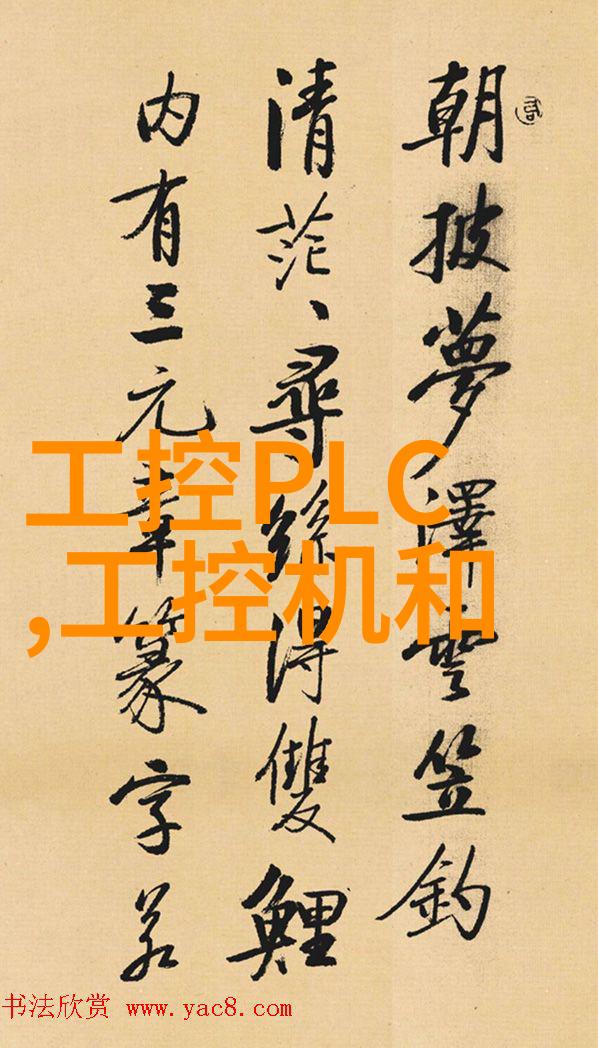 朝披夢澤雲笠釣
清茫、尋絲得雙鯉
内有三元章篆字若
工控PLC
,工控机和
书法欣赏 www.yac8.com